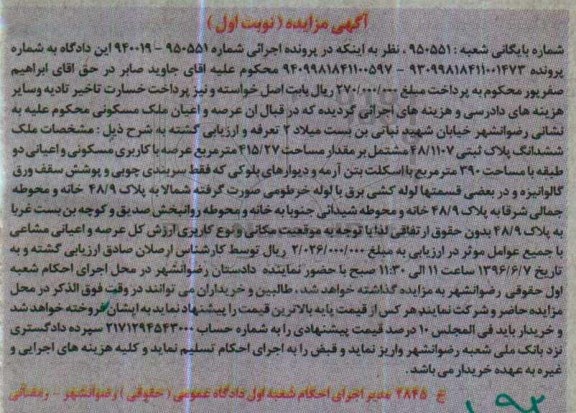 آگهی مزایده (نوبت اول)
شماره بایگانی شعبه : ۹۵۰۵۵۱ . نظر به اینکه در پرونده اجرائی شماره ۹۵۰۵۵۱ - ۹۴۰۰۱۹ این دادگاه به شماره
پرونده ۹۳۰۹۹۸۱۸۴۱۱۰۰۱۴۷۳ - ۹۴۰۹۹۸۱۸۴۱۱۰۰۵۹۷ محکوم علیه اقای جاوید صابر در حق اقای ابراهیم
صفرپور محکوم به پرداخت مبلغ ۲۷۰/۰۰۰/۰۰۰ ریال بابت اصل خواسته و نیز پرداخت خسارت تاخیر تادیه وسایر
هزینه های دادرسی و هزینه های اجرایی گردیده که در قبال ان عرصه و اعیان ملک مسکونی محکوم علیه به
نشانی رضوانشهر خیابان شهید نباتی بن بست میلاد ۲ تعرفه و ارزیابی گشته به شرح ذیل : مشخصات ملک
ششدانگ پلاک ثبتی ۴۸/۱۱۰۷ مشتمل بر مقدار مساحت ۴۱۵/۲۷ مترمربع عرصه با کاربری مسکونی و اعیانی دو
طبقه با مساحت ۳۹۰ مترمربع با اسکلت بتن آرمه و دیوارهای بلوکی که فقط سربندی چوبی و پوشش سقف ورق
گالوانیزه و در بعضی قسمتها لوله کشی برق با لوله خرطومی صورت گرفته شمالا به پلاک ۴۸/۹ خانه و محوطه
جمالی شرقا به پلاک ۴۸/۹ خانه و محوطه شیدانی جنوبا به خانه و محوطه روانبخش صدیق و کوچه بن بست غربا
به پلاک ۴۸/۹ بدون حقوق ارتفاقی لذا با توجه به موقعیت مکانی و نوع کاربری ارزش کل عرصه و اعیانی مشاعی
با جمیع عوامل موثر در ارزیابی به مبلغ ۲/۰۳۶/۰۰۰/۰۰۰ ریال توسط کارشناس ارصلان صادق ارزیابی گشته و به
تاریخ ۱۳۹۶/۶/۷ ساعت ۱۱ الی ۱۱:۳۰ صبح با حضور نماینده دادستان رضوانشهر در محل اجرای احکام شعبه
اول حقوقی رضوانشهر به مزایده گذاشته خواهد شد . طالبین و خریداران می توانند در وقت فوق الذکر در محل
مزایده حاضر و شرکت نمایند هر کس از قیمت پایه بالاترین قیمت را پیشنهاد نماید به ایشان فروخته خواهد شد
و خریدار باید فی المجلس ۱۰ درصد قیمت پیشنهادی را به شماره حساب ۲۱۷۱۲۹۴۵۴۳۰۰۰ سپرده دادگستری
نزد بانک ملی شعبه رضوانشهر واریز نماید و قبض را به اجرای احکام تسلیم نماید و کلیه هزینه های اجرایی و
غیره به عهده خریدار می باشد .
ع ۲۸۴۵ مدیر اجرای احکام شعبه اول دادگاه عمومی (حقوقی) رضوانشهر - رمضانی